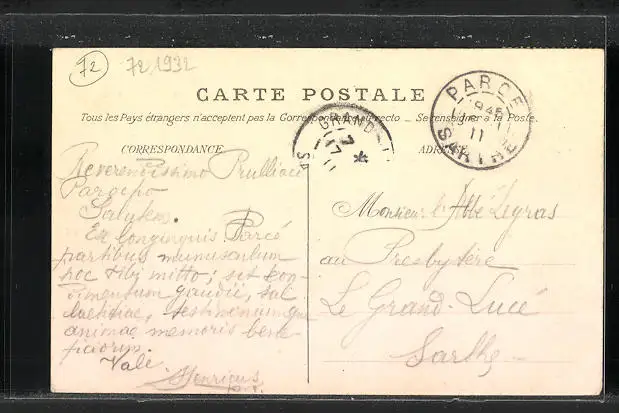 72
72.1932
CARTE POSTALE
Tous les Pays étrangers n'acceptent pas la Correspondance au recto — Se renseigner à la Poste.
CORRESPONDANCE
ADRESSE
PARCÉ
1945
11
SARTHE
GRAND-L
7
17
11
*
Reverendissimo
Salutem.
Ex longinquis Parcé
partibus munusculum
hoc tibi mitto; sit con-
dimentum gaudii, sal
laetitiae, testimoniumque
animae memoris bene-
ficiorum.
Vale
Henricus
Monsieur l'Abbé Legras
au Presbytère
Le Grand-Lucé
Sarthe